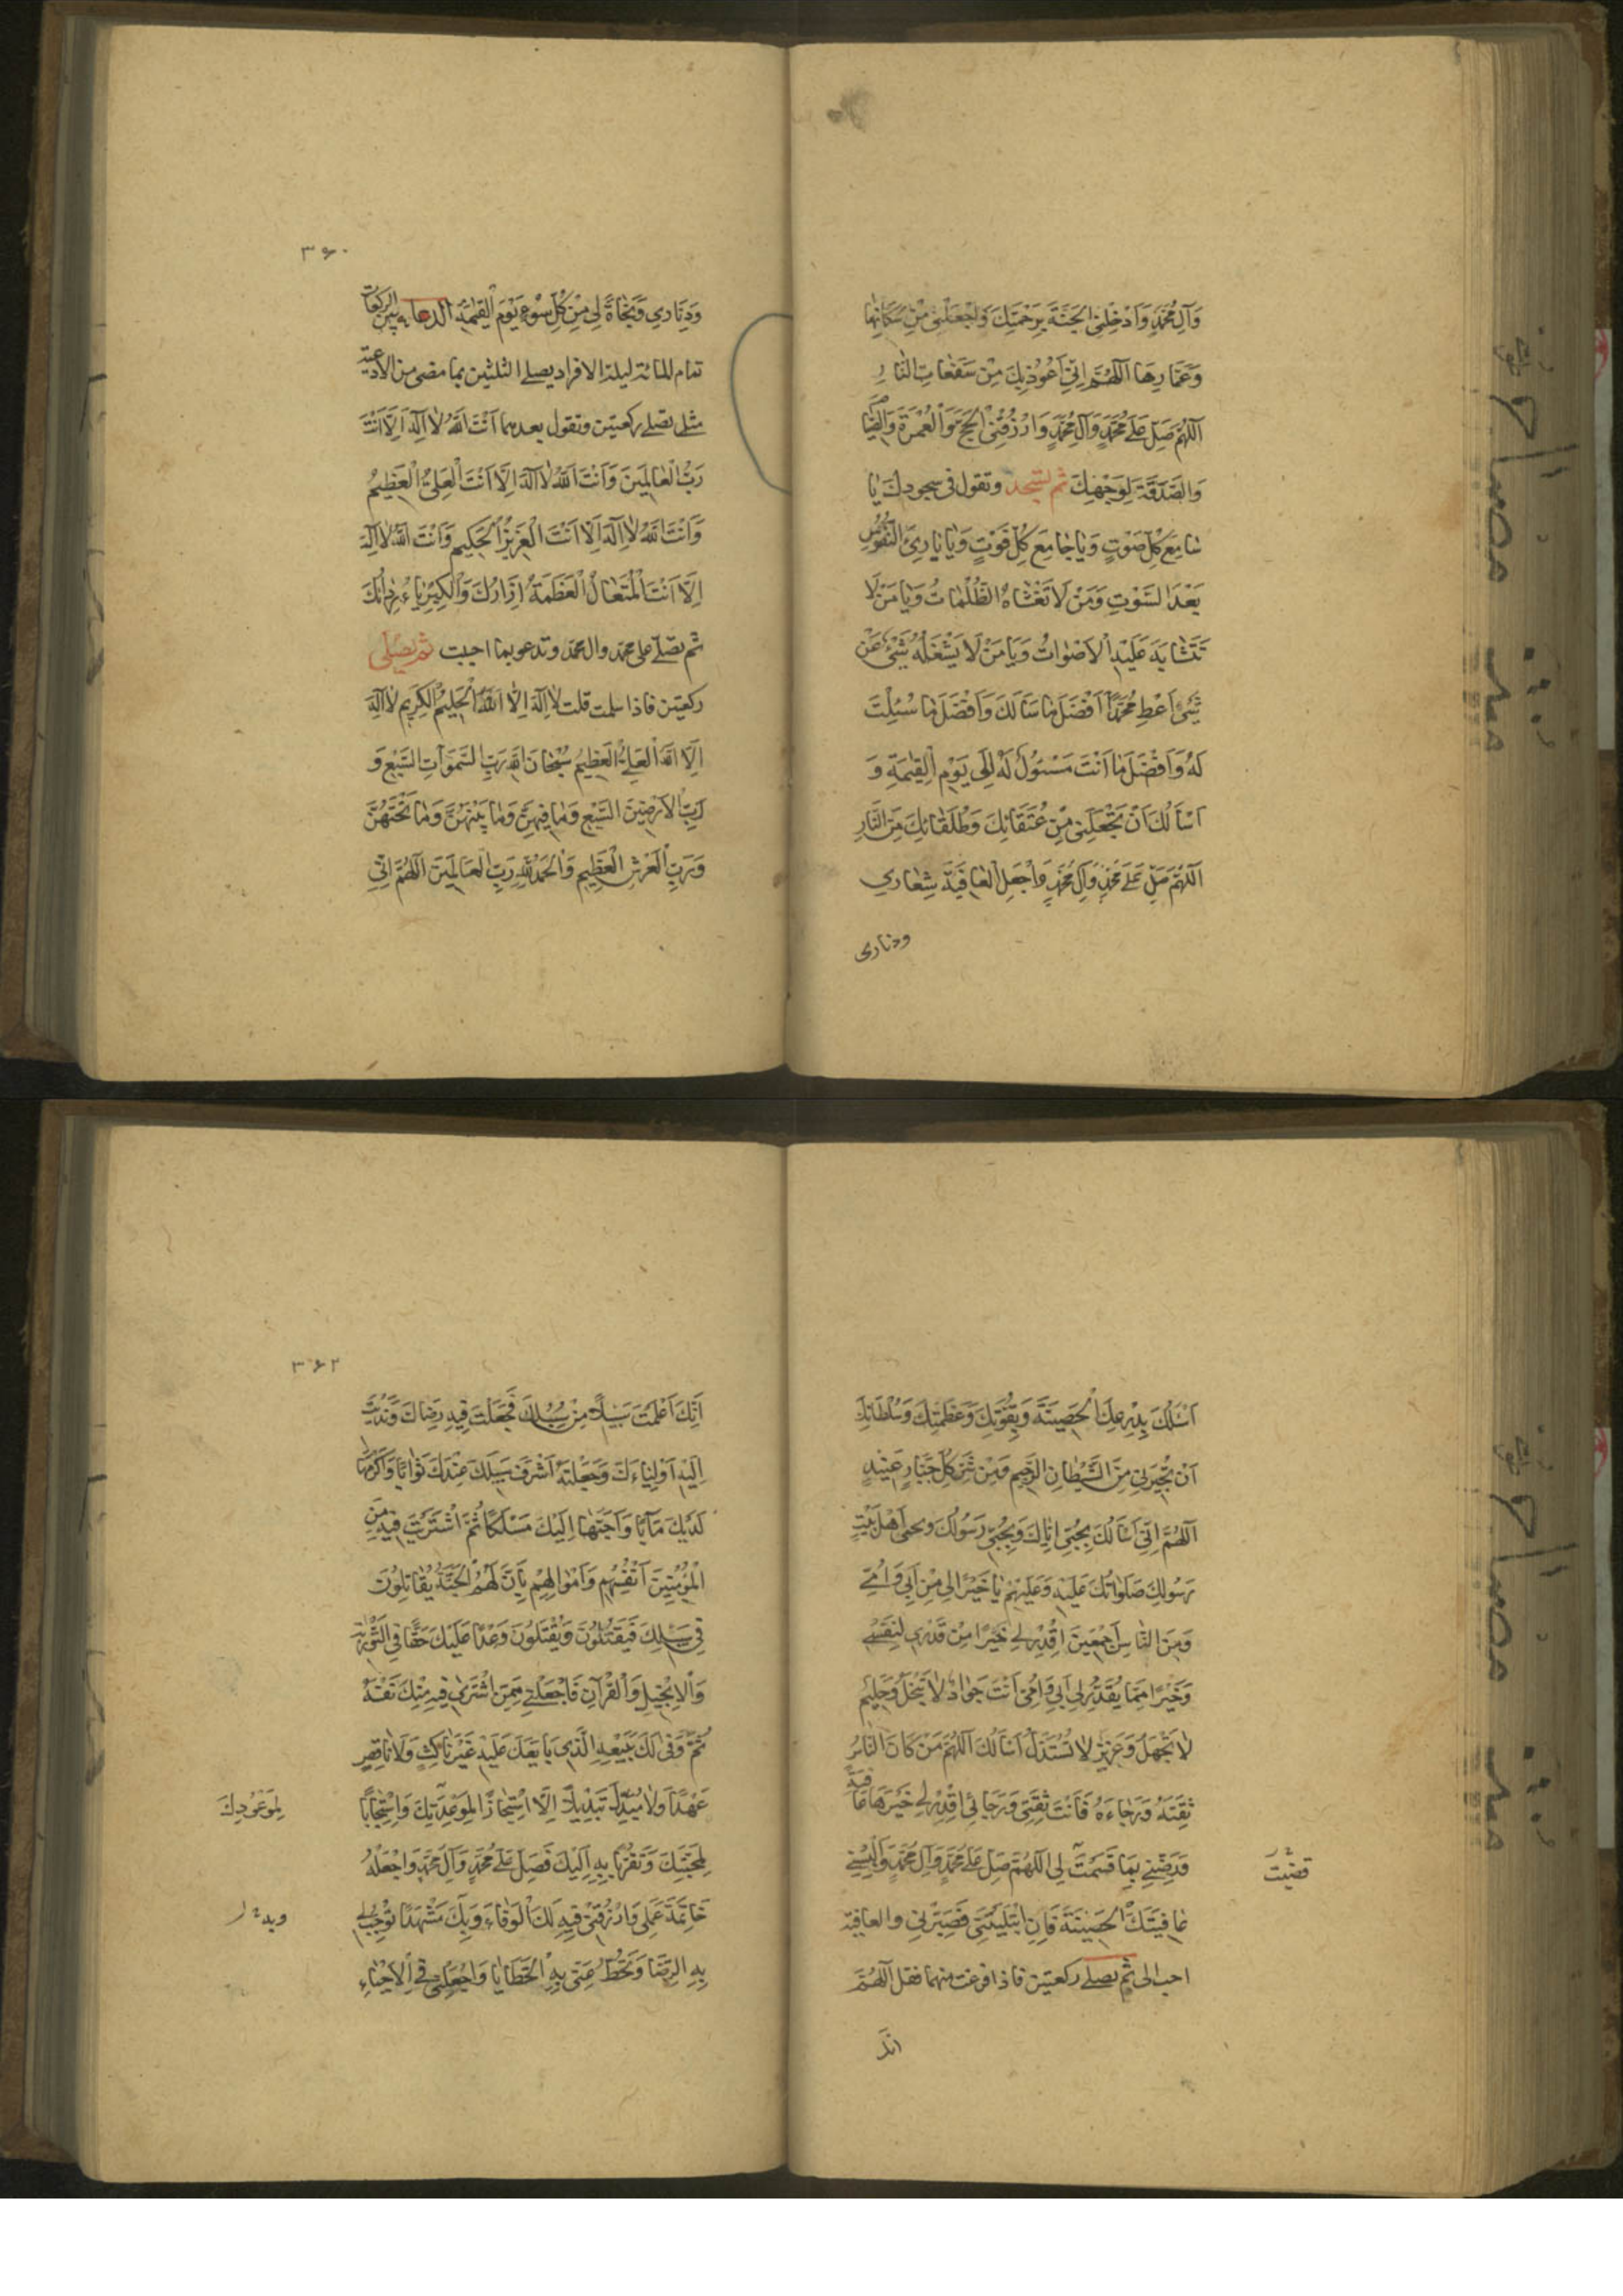 وَآلِ مُحَمَّدٍ وَاَدْخِلْنِی الْجَنَّةَ بِرَحْمَتِكَ وَاجْعَلْنِی مِنْ سُكَّانِهٰا
وَعُمّٰارِهٰا اَللّٰهُمَّ اِنّی اَعُوذُ بِكَ مِنْ سَفَعٰاتِ النّٰارِ
اَللّٰهُمَّ صَلِّ عَلٰی مُحَمَّدٍ وَآلِ مُحَمَّدٍ وَارْزُقْنِی الْحَجَّ وَالْعُمْرَةَ وَالصِّیٰامَ
وَالصَّدَقَةَ لِوَجْهِكَ ثم تسجد وتقول فی سجودك یٰا
سٰامِعَ كُلِّ صَوْتٍ وَیٰا جٰامِعَ كُلِّ فَوْتٍ وَیٰا بٰارِئَ النُّفُوسِ
بَعْدَ الْمَوْتِ وَمَنْ لاٰ تَغْشٰاهُ الظُّلُمٰاتُ وَیٰا مَنْ لاٰ
تَتَشٰابَهُ عَلَیْهِ الْاَصْوٰاتُ وَیٰا مَنْ لاٰ یَشْغَلُهُ شَیْءٌ عَنْ
شَیْءٍ اَعْطِ مُحَمَّداً اَفْضَلَ مٰا سَاَلَكَ وَاَفْضَلَ مٰا سُئِلْتَ
لَهُ وَاَفْضَلَ مٰا اَنْتَ مَسْئُولٌ لَهُ اِلٰی یَوْمِ الْقِیٰمَةِ وَ
اَسْاَلُكَ اَنْ تَجْعَلَنِی مِنْ عُتَقٰائِكَ وَطُلَقٰائِكَ مِنَ النَّارِ
اَللّٰهُمَّ صَلِّ عَلٰی مُحَمَّدٍ وَآلِ مُحَمَّدٍ وَاجْعَلِ الْعٰافِیَةَ شِعٰارِی
ودثاری
۳۶۰
وَدِثٰارِی وَنَجٰاةً لِی مِنْ كُلِّ سُوءٍ یَوْمَ الْقِیٰمَةِ الدعاء بین الركعات
تمام المائة لیلة الافراد یصلی الثلثین بما مضی من الادعیة
مثلی تصلی ركعتین وتقول بعدهما اَنْتَ اللّٰهُ لاٰ اِلٰهَ اِلاّٰ اَنْتَ
رَبُّ الْعٰالَمِینَ وَاَنْتَ اللّٰهُ لاٰ اِلٰهَ اِلاّٰ اَنْتَ الْعَلِیُّ الْعَظِیمُ
وَاَنْتَ اللّٰهُ لاٰ اِلٰهَ اِلاّٰ اَنْتَ الْعَزِیزُ الْحَكِیمُ وَاَنْتَ اللّٰهُ لاٰ اِلٰهَ
اِلاّٰ اَنْتَ الْمُتَعٰالُ الْعَظَمَةُ اِزٰارُكَ وَالْكِبْرِیٰاءُ رِدٰاؤُكَ
ثم تصلی علی محمد وال محمد وتدعو بما احببت ثم تصلی
ركعتین فاذا سلمت قلت لاٰ اِلٰهَ اِلاَّ اللّٰهُ الْحَلِیمُ الْكَرِیمُ لاٰ اِلٰهَ
اِلاَّ اللّٰهُ الْعَلِیُّ الْعَظِیمُ سُبْحٰانَ اللّٰهِ رَبِّ السَّمٰوَاتِ السَّبْعِ وَ
رَبِّ الْاَرَضِینَ السَّبْعِ وَمٰا فِیهِنَّ وَمٰا بَیْنَهُنَّ وَمٰا تَحْتَهُنَّ
وَرَبِّ الْعَرْشِ الْعَظِیمِ وَالْحَمْدُ لِلّٰهِ رَبِّ الْعٰالَمِینَ اَللّٰهُمَّ اِنّی
اَسْئَلُكَ بِدِرْعِكَ الْحَصِینَةِ وَبِقُوَّتِكَ وَعَظَمَتِكَ وَسُلْطٰانِكَ
اَنْ تُجِیرَنِی مِنَ الشَّیْطٰانِ الرَّجِیمِ وَمِنْ شَرِّ كُلِّ جَبّٰارٍ عَنِیدٍ
اَللّٰهُمَّ اِنّی اَسْاَلُكَ بِحُبِّی اِیّٰاكَ وَبِحُبِّی رَسُولَكَ وبحبی اَهْلَ بَیْتِ
رَسُولِكَ صَلَوٰاتُكَ عَلَیْهِ وَعَلَیْهِمْ یٰا خَیْراً لِی مِنْ اَبِی وَاُمّی
وَمِنَ النّٰاسِ اَجْمَعِینَ اِقْدِرْ لِی خَیْراً مِنْ قَدْرِی لِنَفْسِی
وَخَیْراً مِمّٰا یَقْدِرُ لِی اَبِی وَاُمّی اَنْتَ جَوٰادٌ لاٰ تَبْخَلُ وَحَلِیمٌ
لاٰ تَجْهَلُ وَعَزِیزٌ لاٰ تُسْتَذَلُّ اَسْاَلُكَ اَللّٰهُمَّ مَنْ كٰانَ النّٰاسُ
ثِقَتَهُ وَرَجٰاءَهُ فَاَنْتَ ثِقَتِی وَرَجٰائِی اِقْدِرْ لِی خَیْرَهٰا عٰافِیَةً
وَرَضِّنِی بِمٰا قَسَمْتَ لِی اَللّٰهُمَّ صَلِّ عَلٰی مُحَمَّدٍ وَآلِ مُحَمَّدٍ وَاَلْبِسْنِی
قضیت
عٰافِیَتَكَ الْحَصِینَةَ فَاِنِ ابْتَلَیْتَنِی فَصَبِّرْنِی والعافیة
احب الی ثم تصلی ركعتین فاذا فرغت منهما فقل اَللّٰهُمَّ
انك
۳۶۲
اِنَّكَ اَعْلَمْتَ سَبِیلاً مِنْ سُبُلِكَ فَجَعَلْتَ فِیهِ رِضٰاكَ وَنَدَبْتَ
اِلَیْهِ اَوْلِیٰاءَكَ وَجَعَلْتَهُ اَشْرَفَ سُبُلِكَ عِنْدَكَ ثَوٰاباً وَاَكْرَمَهٰا
لَدَیْكَ مَآباً وَاَحَبَّهٰا اِلَیْكَ مَسْلَكاً ثُمَّ اشْتَرَیْتَ فِیهِ مِنَ
الْمُؤْمِنِینَ اَنْفُسَهُمْ وَاَمْوٰالَهُمْ بِاَنَّ لَهُمُ الْجَنَّةَ یُقٰاتِلُونَ
فِی سَبِیلِكَ فَیَقْتُلُونَ وَیُقْتَلُونَ وَعْداً عَلَیْكَ حَقّاً فِی التَّوْرٰیةِ
وَالْاِنْجِیلِ وَالْقُرْآنِ فَاجْعَلْنِی مِمَّنِ اشْتَرٰی فِیهِ مِنْكَ نَفْسَهُ
ثُمَّ وَفٰی لَكَ بِبَیْعِهِ الَّذِی بٰایَعَكَ عَلَیْهِ غَیْرَ نٰاكِثٍ وَلاٰ نٰاقِضٍ
عَهْداً وَلاٰ مُبَدِّلٍ تَبْدِیلاً اِلاَّ اسْتِنْجٰازاً لِمَوْعِدَتِكَ وَاِسْتِیجٰاباً
لِمَوْعُودِكَ
لِمَحَبَّتِكَ وَتَقَرُّباً بِهِ اِلَیْكَ فَصَلِّ عَلٰی مُحَمَّدٍ وَآلِ مُحَمَّدٍ وَاجْعَلْهُ
خٰاتِمَةَ عَمَلِی وَارْزُقْنِی فِیهِ لَكَ الْوَفٰاءَ وَبِكَ مَشْهَداً تُوجِبُ لِی
بِهِ الرِّضٰا وَتَحُطُّ عَنّی بِهِ الْخَطٰایٰا وَاجْعَلْنِی فِی الْاَحْیٰاءِ